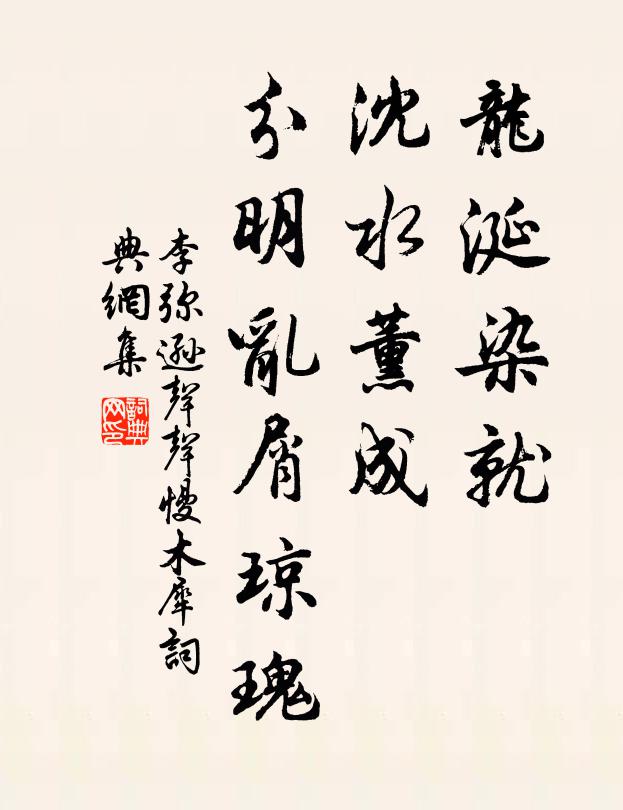 龍涎染就
沈水薰成
分明亂屑琼瑰
李弥遜聲聲慢木犀詞
典網集
詞典
网印